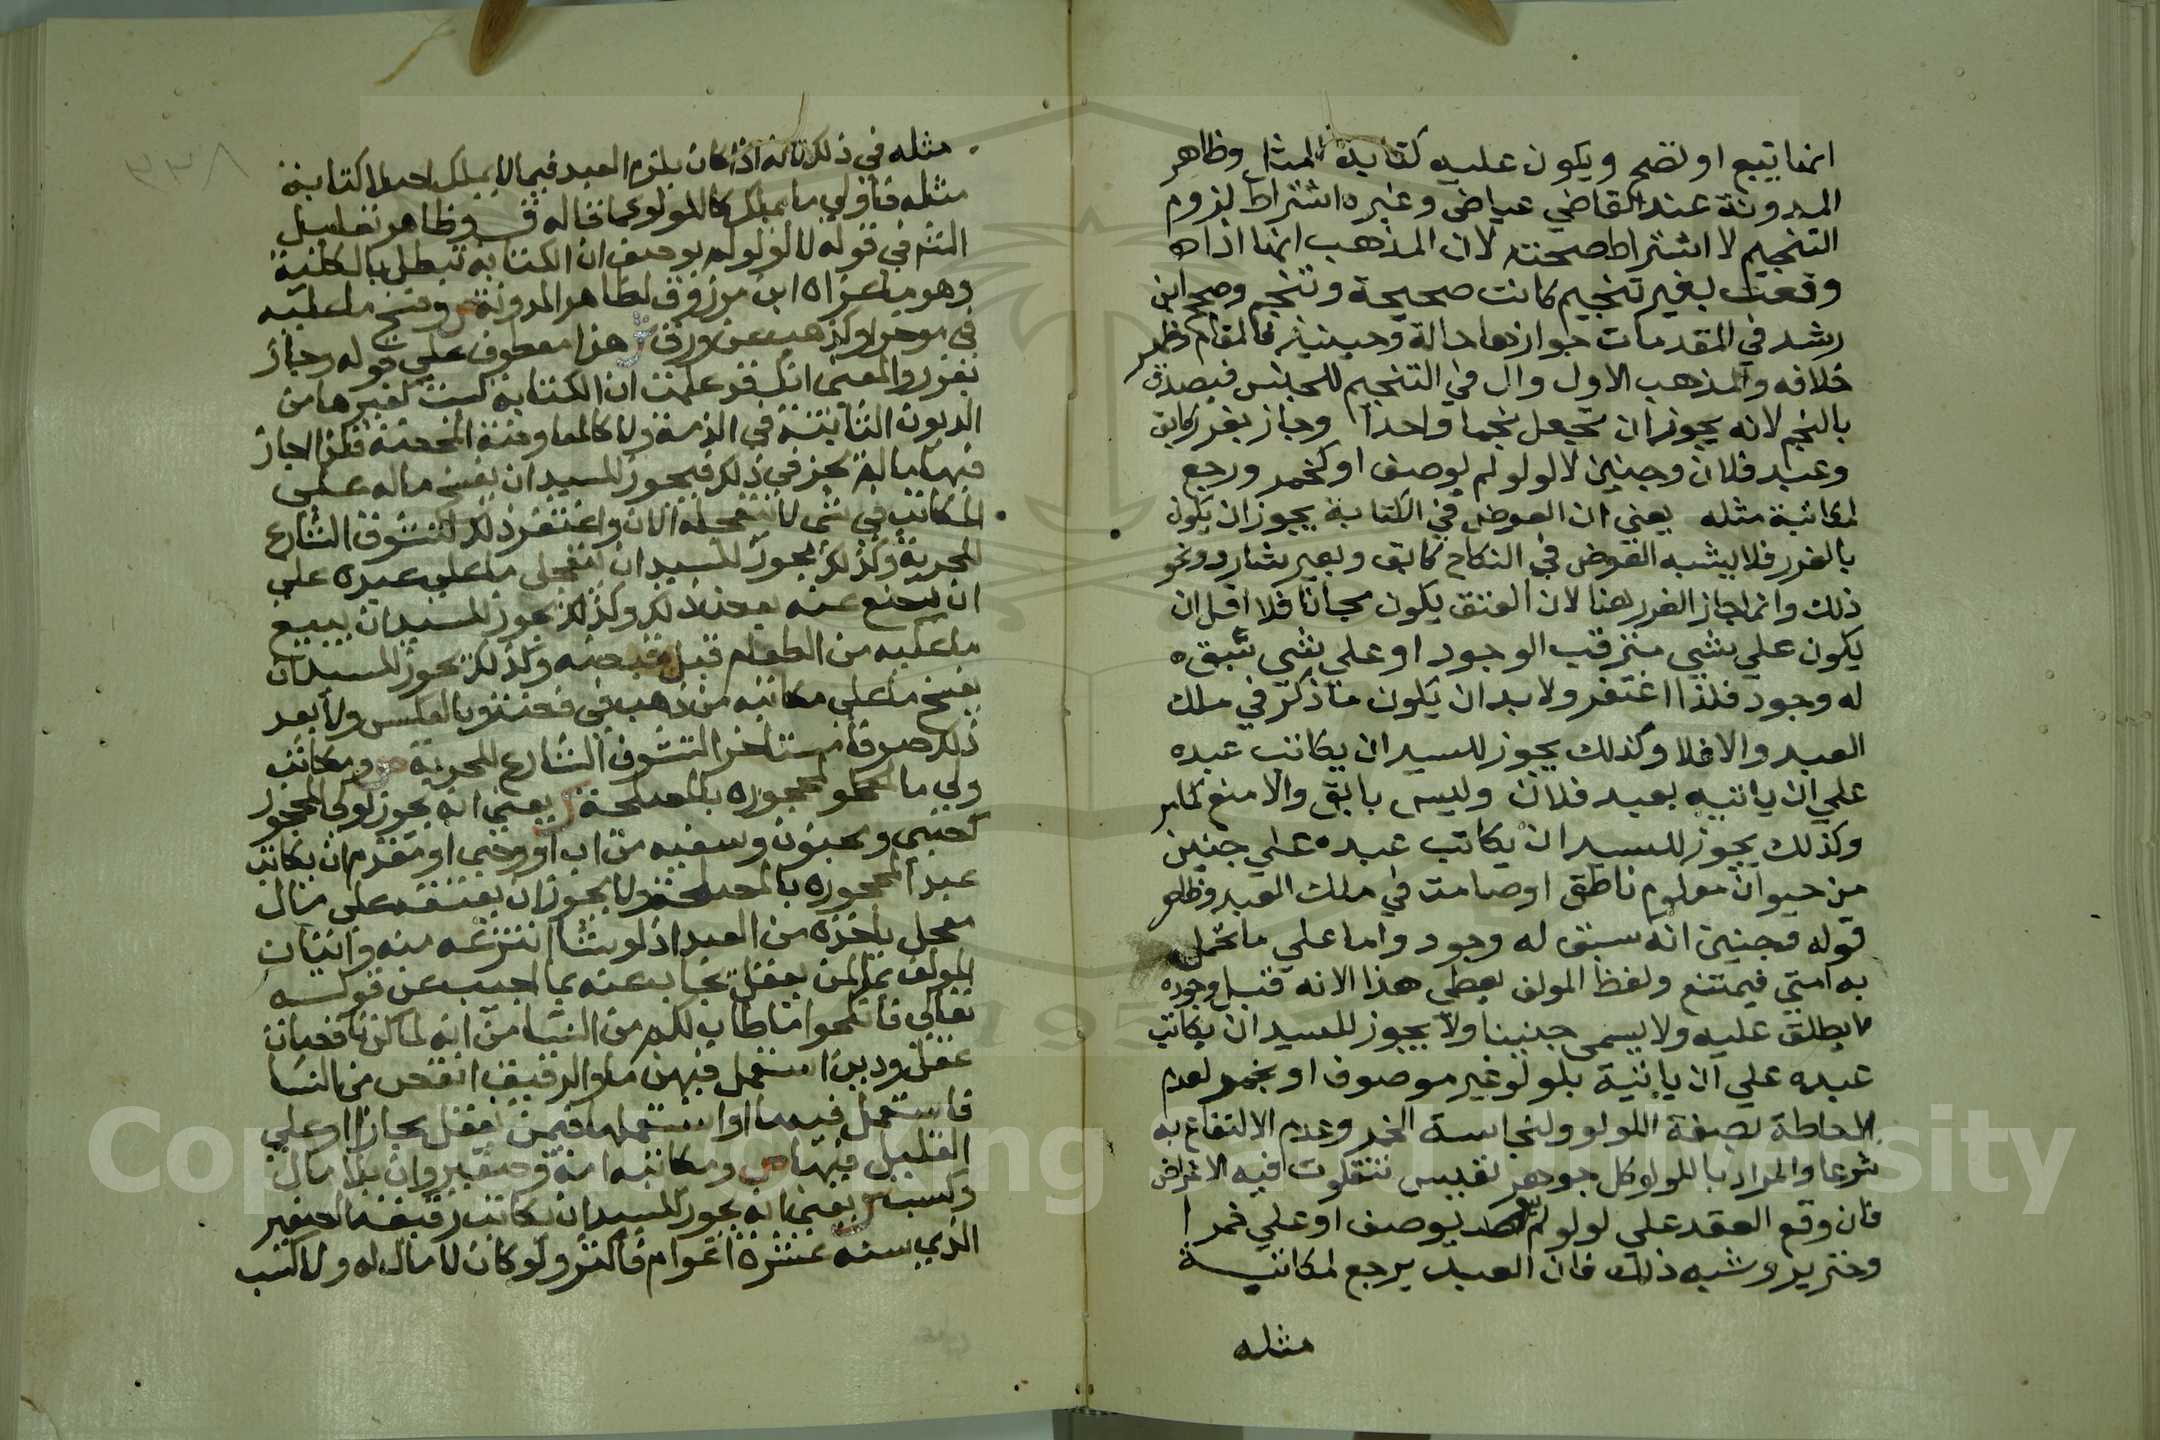 انما تبيع او تضح ويكون عليه كتابة المثل وظاهر
المدونة عند القاضي عياض وغيره اشتراط لزوم
التنجيم لا اشتراط صحته لان المذهب انما اذا
وقعت بغير تنجيم كانت صحيحة وتنجم وصحح ابن
رشد في المقدمات جوازها حالة وحينئذ فالمقام
خلافه والمذهب الاول وال في التنجيم للجنس فيصدق
بالنجم لانه يجوز ان تجعل نجما واحدا وجاز بغرر كابق
وعبد فلان وجنين لا لولو لم يوصف او كخمر ورجع
لمكاتبة مثله يعني ان العوض في الكتابة يجوز ان يكون
بالغرر فلا يشبه العوض في النكاح كابق وبعير شارد ونحو
ذلك وانما جاز الغرر هنا لان العتق يكون مجانا فلا اقل ان
يكون علي شي مترقب الوجود او علي شي
له وجود فلذا اغتفر ولا بد ان يكون ما ذكر في ملك
العبد والا فلا وكذلك يجوز للسيد ان يكاتب عبده
علي ان ياتيه بعبد فلان وليس بابق والا منع كمامر
وكذلك يجوز للسيد ان يكاتب عبده علي جنين
من حيوان معلوم ناطق او صامت في ملك العبد وظاهر
قوله وجنين انه سبق له وجود واما علي ما تحمل
به امتي فيمتنع ولفظ المولف يعطي هذا لانه قبل وجوده
لا يطلق عليه ولا يسمى جنينا ولا يجوز للسيد ان يكاتب
عبده علي ان ياتيه بلولو غير موصوف او بخمر لعدم
الاحاطة بصفة اللولو ولنجاسة الخمر وعدم الانتفاع به
شرعا والمراد باللولو كل جوهر نفيس تتفاوت فيه الاغراض
فان وقع العقد علي لولو لم يوصف او علي خمر
وخنزير وشبه ذلك فان العبد يرجع لمكاتبة
مثله
٣٣٨
مثله في ذلك لانه اذا كان يلزم العبد فيما لا يملك احد الكتابة
مثله فاولي ما يملك كاللولو كما قاله وظاهر تفاصيل
الشم في قوله لا لولو لم يوصف ان الكتابة تبطل بالكلية
وهو ما عزاه ابن مرزوق لظاهر المدونة ص وفسخ ما عليه
في موخر او كذهب عن ورق ش هذا معطوف علي قوله وجاز
بغرر والمعنى انك قد علمت ان الكتابة ليست كغيرها من
الديون الثابتة في الذمة ولا كالمعاوضة المحضة فلذا جاز
فيها ما لم يجز في ذلك فيجوز للسيد ان يفسخ ماله على
المكاتب في شي لا يتعجله الان واغتفر ذلك لتشوف الشارع
للحرية وكذلك يجوز للسيد ان يتعجل ما على عبده علي
ان يضع عنه بعض ذلك وكذلك يجوز للسيد ان يبيع
ما عليه من الطعام قبل قبضه وكذلك يجوز للسيد ان
يفسخ ما على مكاتبه من ذهب في فضة وبالعكس ولا يعد
ذلك صرفا مستاخرا لتشوف الشارع للحرية ص ومكاتبة
ولي ما للمحجوره بالمصلحة ش يعني انه يجوز لولي المحجور
كصبي ومجنون وسفيه من اب او وصي او مقدم ان يكاتب
عبد المحجوره بالمصلحة ولا يجوز ان يعتقه على مال
معجل ياخذه من العبد اذ لو شا انتزعه منه واتيان
المولف بما لمن يعقل يجاب عنه بما اجيب عن قوله
تعالي فانكحوا ما طاب لكم من النسا من انه لما كن ناقصات
عقل ودين استعمل فيهن ما والرقيق انقص من النسا
فاستعمل فيه ما او استعملها فيمن يعقل مجازا او علي
القليل فيها ص ومكاتبة امة وصغير وان بلا مال
وكسب ش يعني انه يجوز للسيد ان يكاتب رقيقه الصغير
الذي سنه عشرة اعوام فاكثر ولو كان لا مال له ولا كسب